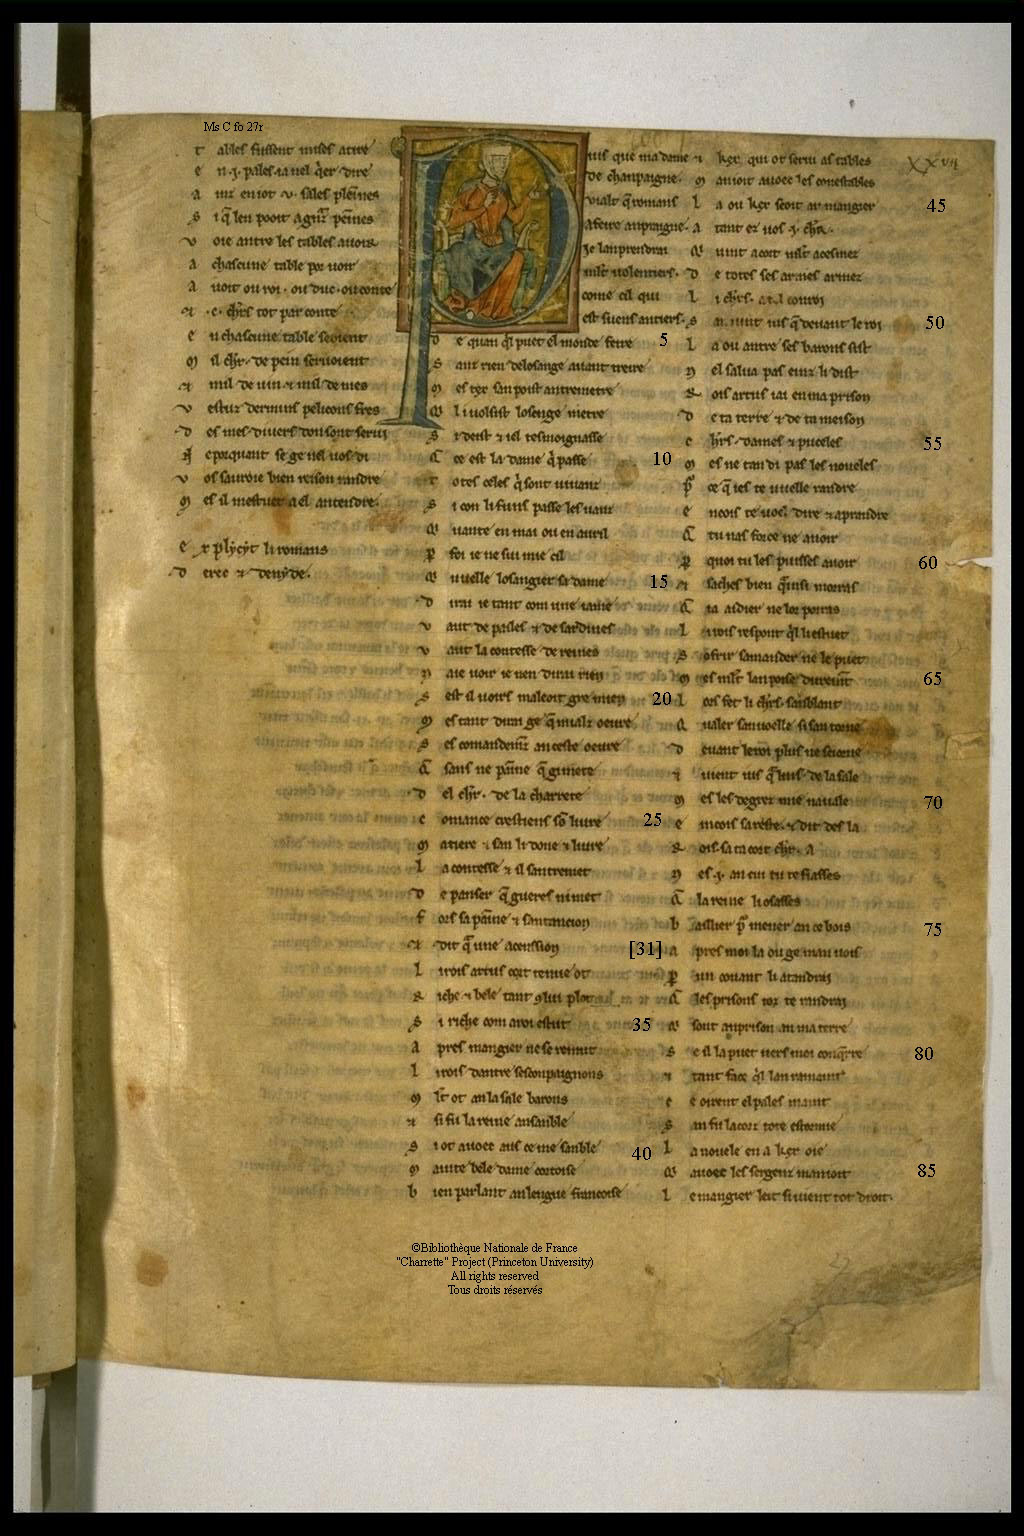 Ms C fo 27r
XXVII
t ables fussent mises arire
e n .i. pales ia nel q̃er dire
a nz en iot .v. sales pleines
s i q̃ len pooit a peines
v oie antre les tables auoir
a chascune table por uoir
a uoit ou roi . ou duc . ou conte
⁊ .c. chrs tot par conte
e n chascune table seoient
m il chr . de pein seruoient
⁊ mil de uin ⁊ mil de mes
v estuz dermins pelicons fres
d es mes diuers don sont serui
ne porquant se ge nel uos di
v os sauroie bien reison randre
m es il mestuet a el antendre .
e xplycyt li romans
d erec ⁊ denyde .
P uis que ma dame
de chanpaigne .
vialt q̃ romans
a feire anpraigne .
Je lanprendrai
mlt uolentiers .
come cil qui
est suens antiers .
d e quan q̃l puet el monde feire
5
s anz rien de losange auant treire
m es tex san poist antremetre
q̃ li uolsist losenge metre
s i deist ⁊ iel tesmoignasse
q̃ ce est la dame q̃ passe
10
t otes celes q̃ sont uiuanz
s i con li funs passe les uanz
q̃ uante en mai ou en auril
p foi ie ne sui mie cil
q̃ uuelle losangier sa dame
15
d irai ie tant com une iame
v aut de pailes ⁊ de sardines
v aut la contesse de reines
n aie uoir ie nen dirai rien
s est il uoirs maleoit gre mien
20
m es tant dirai ge q̃ mialz oeure
s es comandemz an ceste oeure
q̃ sans ne painne q̃ gi mete
d el chr . de la charrete
c omance crestiens so liure
25
m atiere ⁊ san li done ⁊ liure
l a contesse ⁊ il santremet
d e panser q̃ gueres ni met
f ors sa painne ⁊ santancion
⁊ dit q̃ a une acenssion
[31]
l i rois artus cort tenue ot
r iche ⁊ bele tant 9 lui plot
s i riche com a roi estut
35
a pres mangier ne se remut
l i rois dantre ses conpaignons
m lt ot an la sale barons
⁊ si fu la reine ansanble
s i ot auoec aus ce me sanble
40
m ainte bele dame cortoise
b ien parlant an lengue francoise
⁊ kex qui ot serui as tables
m anioit auoec les conestables
l a ou kex seoit au mangier
45
a tant ez uos .i. chr .
q̃ uint a cort mlt acesmez
d e totes ses armes armez
l i chrs . a tel conroi
s an uint ius q̃ deuant le roi
50
l a ou antre ses barons sist
n el salua pas einz li dist
r ois artus iai en ma prison
d e ta terre ⁊ de ta meison
c hrs . dames ⁊ puceles
55
m es ne tan di pas les noueles
p̃ ce q̃ ies te uuelle randre
e ncois te uoel dire ⁊ aprandre
q̃ tu nas force ne auoir
p quoi tu les puisses auoir
60
⁊ saches bien q̃nsi morras
q̃ ia aidier ne lor porras
l i rois respont q̃l li estuet
s ofrir samander ne le puet
m es mlt lan poise duremt
65
l ors fet li chrs . sanblant
q̃ aler san uoelle si san torne
d euant le roi plus ne seiorne
⁊ uient ius q̃ luis de la sale
m es les degrez mie nauale
70
e incois sareste . ⁊ dit des la
r ois . sa ta cort chr . a
n es .i. an cui tu te fiasses
q̃ la reine li osasses
b aillier p̃ mener an ce bois
75
a pres moi la ou ge man uois
p un couant li atandrai
q̃ les prisons toz te randrai
q̃ sont an prison an ma terre
s e il la puet uers moi conq̃rre
80
⁊ tant face q̃l lan ramaint
c e oirent el pales maint
s an fu la corz tote estormie
l a nouele en a kex oie
q̃ auoec les sergenz manioit
85
l e mangier leit si uient tot droit .
©Bibliothèque Nationale de France
"Charrette" Project (Princeton University)
All rights reserved
Tous droits réservés